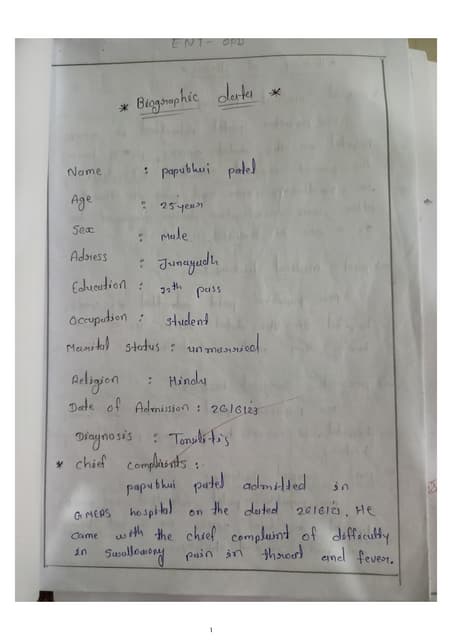 ENT- OPD
* Biographic data *
Name : papubhai patel
Age : 25 year
Sex : Male
Adress : Junagadh
Education : 12th pass
Occupation : student
Marital status : unmarried
Religion : Hindu
Date of Admission : 26/6/23
Diagnosis : Tonsilitis
* chief complaints :
papubhai patel admitted in
GMERS hospital on the dated 26/6/23. He
came with the chief complaint of difficulty
in swallowing pain in throat and fever.
1